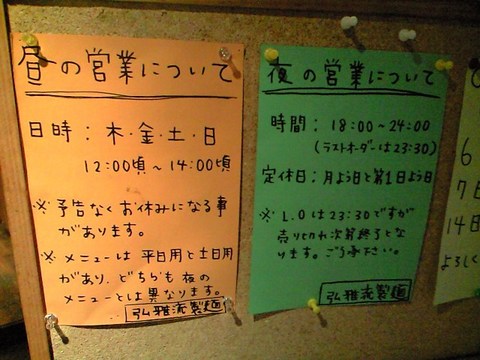 昼の営業について
日時：木・金・土・日
12:00頃～14:00頃
※予告なくお休みになる事
があります。
※メニューは平日用と土日用
があり、どちらも夜の
メニューとは異なります。
弘雅流製麺
夜の営業について
時間：18:00～24:00
(ラストオーダーは23:30)
定休日：月よう日と第1日よう日
※L.Oは23:30ですが
売りきれ次第終了とな
ります。ご了承下さい。
弘雅流製麺
6
7日
14日
よろしく